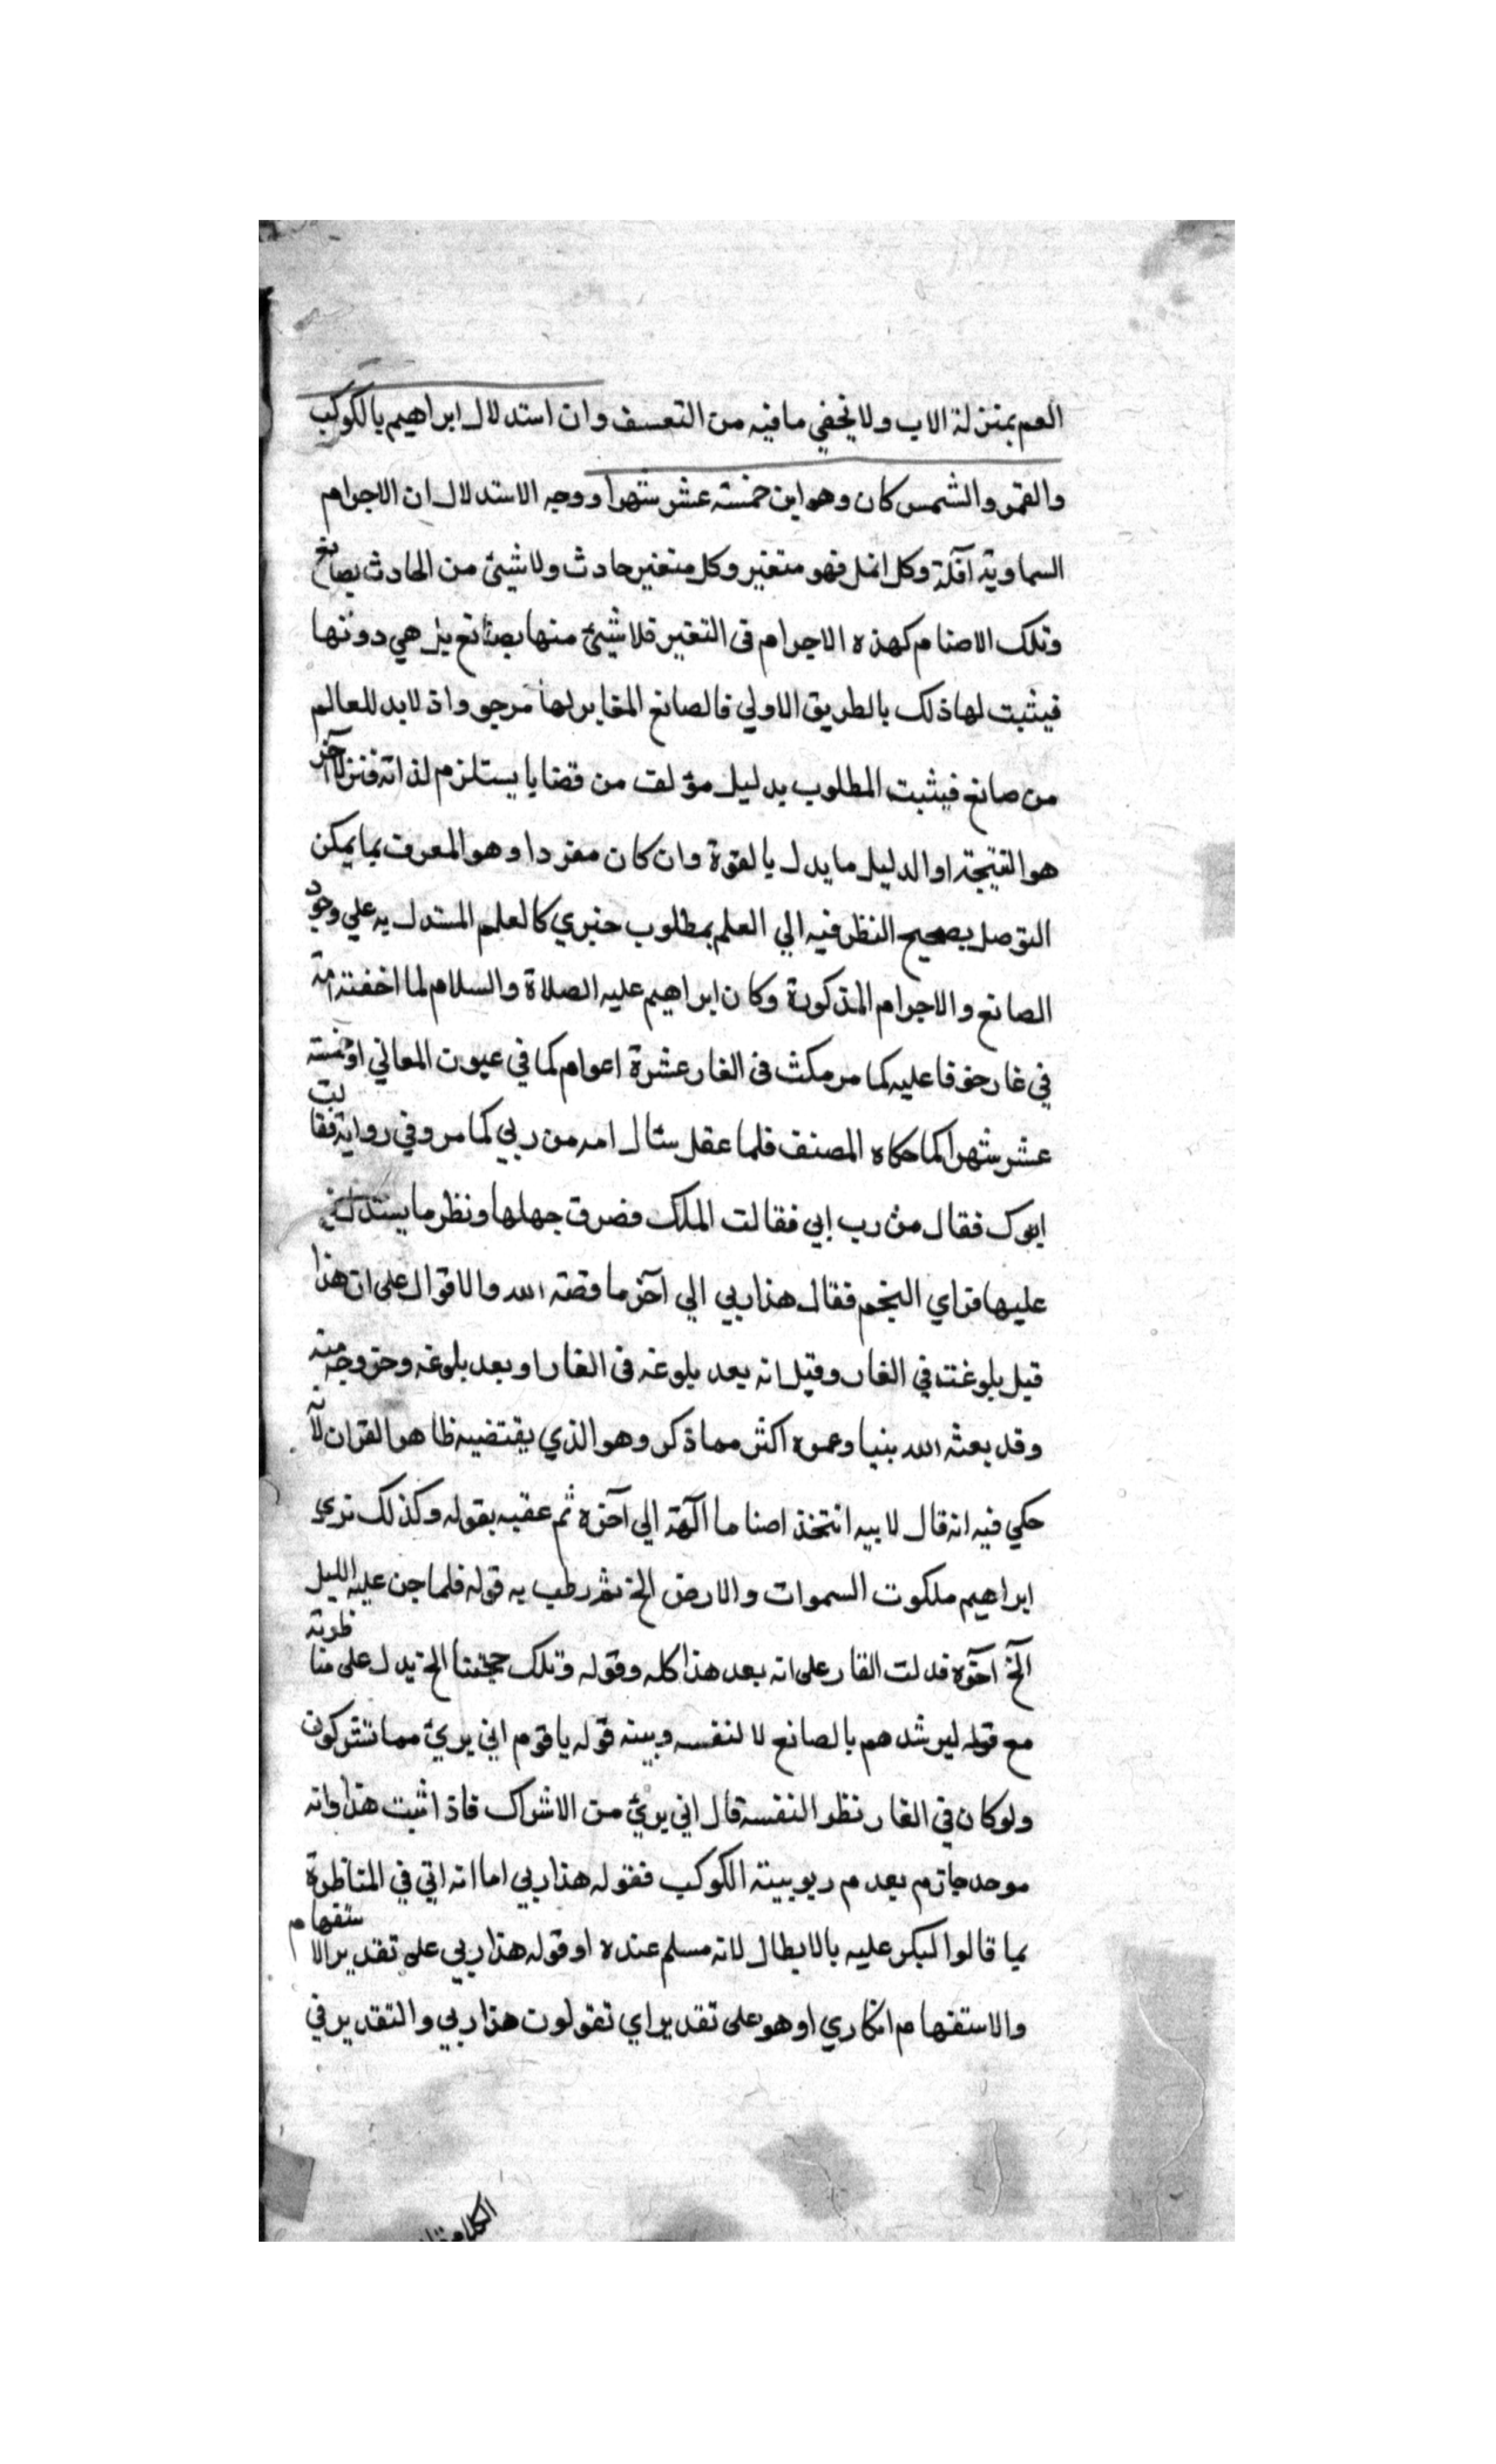 العم بمنزلة الاب ولا يخفي ما فيه من التعسف وان استدلال ابراهيم بالكوكب
والقمر والشمس كان وهو ابن خمسة عشر شهرا ووجه الاستدلال ان الاجرام
السماوية آفلة وكل افل فهو متغير وكل متغير حادث ولا شيئ من الحادث بصانع
وتلك الاصنام كهذه الاجرام في التغير فلا شيئ منها بصانع بل هي دونها
فيثبت لها ذلك بالطريق الاولي فالصانع المغاير لها مرجو واذ لابد للعالم
من صانع فيثبت المطلوب بدليل مؤلف من قضايا يستلزم لذاته قولا آخر
هو النتيجة او الدليل ما يدل بالقوة وان كان مفردا وهو المعرف بما يمكن
التوصل بصحيح النظر فيه الي العلم بمطلوب خبري كالعلم المستدل به علي وجود
الصانع والاجرام المذكورة وكان ابراهيم عليه الصلاة والسلام لما اخفته امه
في غار خوفا عليه كما مر مكث في الغار عشرة اعوام كما في عيون المعاني او خمسة
عشر شهرا كما حكاه المصنف فلما عقل سئال امه من ربي كما مر وفي رواية فقالت
ابوك فقال من رب ابي فقالت الملك فضرق جهلها ونظر ما يستدل به
عليها فراي النجم فقال هذا ربي الي آخر ما قصة الله والاقوال على ان هذا
قبل بلوغه في الغار وقيل انه بعد بلوغه في الغار او بعد بلوغه وخروجه منه
وقد بعثه الله بنيا وعمره اكثر مما ذكر وهو الذي يقتضيه ظاهر القران لانه
حكي فيه انه قال لابيه اتتخذ اصناما آلهة الي آخره ثم عقبه بقوله وكذلك نري
ابراهيم ملكوت السموات والارض الخ ثم رطب به قوله فلما جن عليه الليل
الخ آخره فدلت الفا على انه بعد هذا كله وقوله وتلك حجتنا الخ يدل على مناظرته
مع قوله ليرشدهم بالصانع لا لنفسه وبينه قوله يا قوم اني بريئ مما تشركون
ولو كان في الغار نظر النفسه قال اني بريئ من الاشراك فاذا ثبت هذا وانه
موحد جازم بعدم ربوبية الكوكب فقوله هذا ربي اما انه اتي في المناظرة
بما قالوا لبكر عليه بالابطال لانه مسلم عنده او قوله هذا ربي على تقدير الاستفهام
والاستفهام انكاري او هو على تقدير اي تقولون هذا ربي والتقدير في